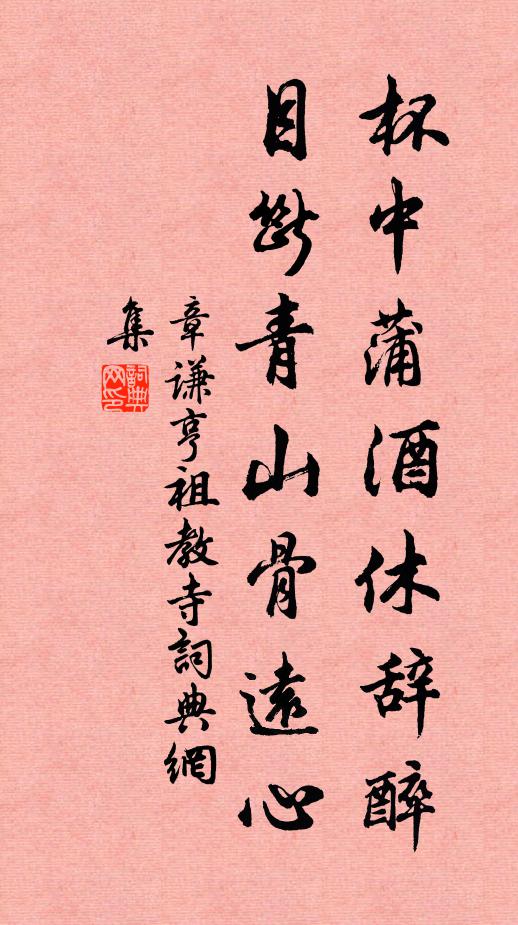 杯中蒲酒休辞醉
目断青山骨遠心
章谦亨祖教寺詞典網
集
詞典
网印